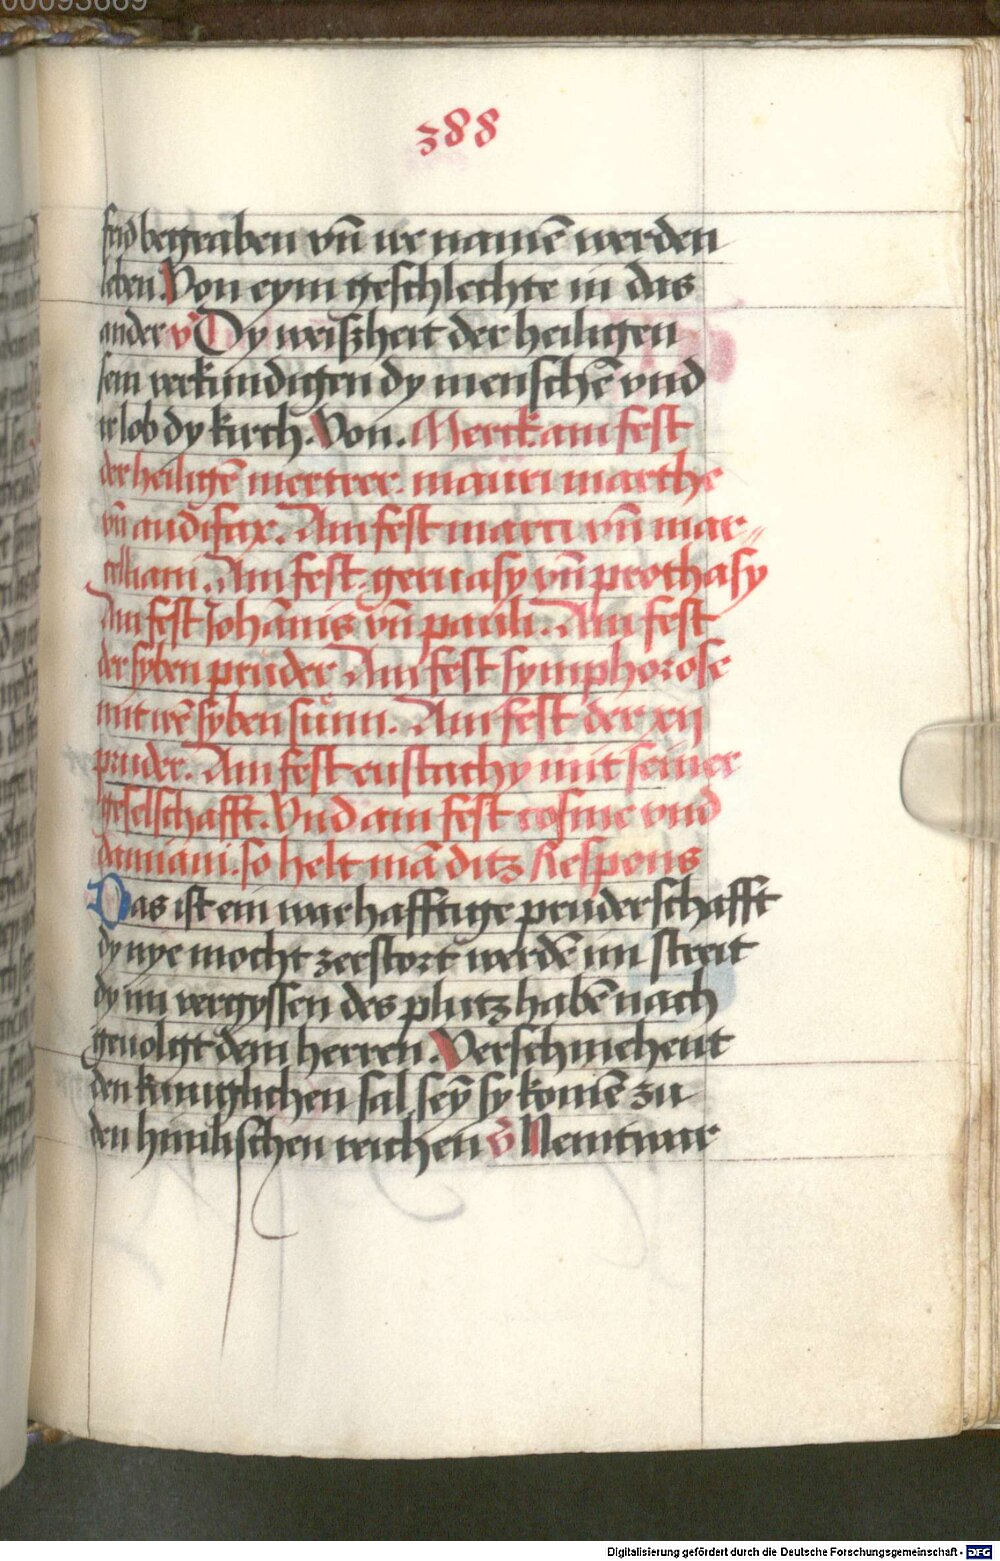 00093669
388
frid begraben vn̄ ire namē werden
leben. Von eym geschlechte in das
ander v̄ Dy weißheit der heiligen
sein verkundigen dy menschē vnd
ir lob dy kirch. Von. Merck am fest
der heiligē mertrer. mauri marthe
vn̄ audifax. Am fest marci vn̄ mar„
celliani. Am fest geruasy vn̄ prothasy
Am fest Johānis vn̄ pauli. Am fest
der syben pruder Am fest symphorose
mit irē syben sunn. Am fest der xij
pruder. Am fest eustachy mit seiner
geselschafft. Vnd am fest cosme vnd
damiani. so helt mā ditz Respons
Das ist ein warhafftige pruderschafft
dy nye mocht zerstort werdē im streit
dy im vergyssen des plutz habē nach
geuolgt dem herren. Verschmehent
den kuniglichen sal seȳ sy komē zu
den himlischen reichen v̄ Nemt war
Digitalisierung gefördert durch die Deutsche Forschungsgemeinschaft - DFG